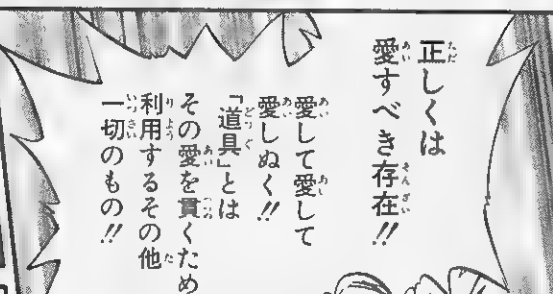 正しくは
愛すべき存在!!
愛して愛して
愛しぬく!!
「道具」とは
その愛を貫くため
利用するその他
一切のもの!!